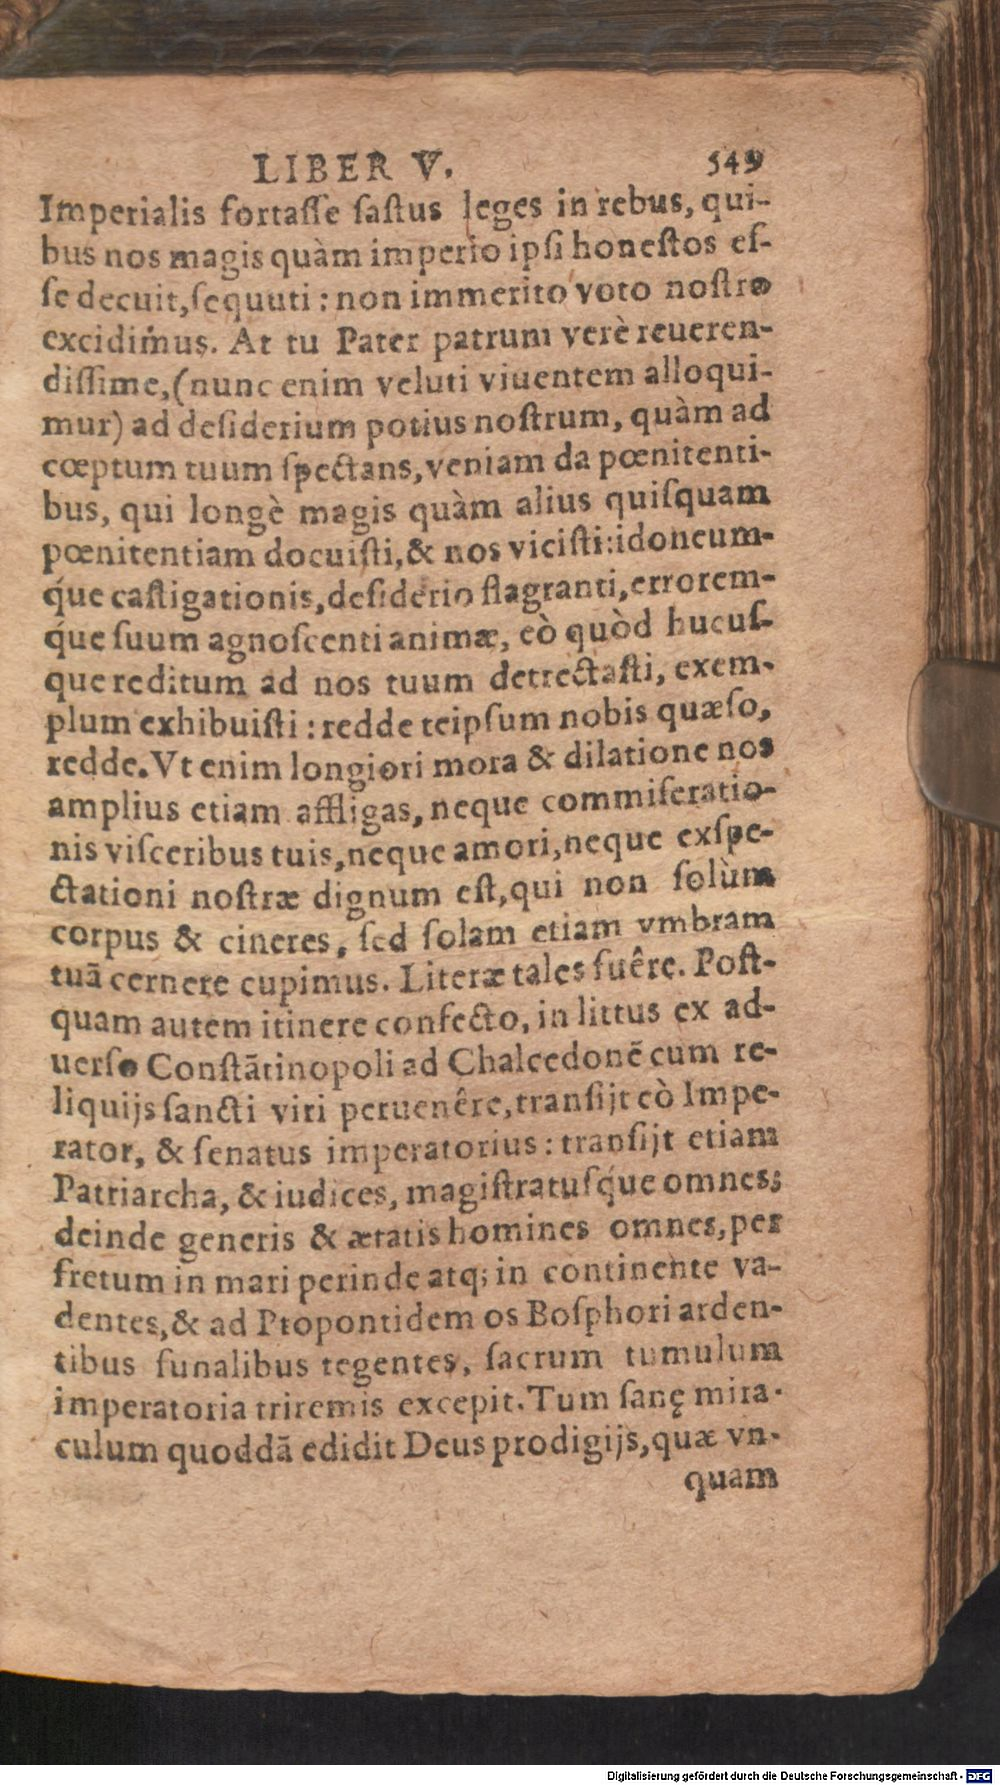 LIBER V. 549
Imperialis fortasse fastus leges in rebus, qui-
bus nos magis quàm imperio ipsi honestos es-
se decuit, sequuti: non immerito voto nostro
excidimus. At tu Pater patrum verè reueren-
dissime, (nunc enim veluti viuentem alloqui-
mur) ad desiderium potius nostrum, quàm ad
cœptum tuum spectans, veniam da pœnitenti-
bus, qui longè magis quàm alius quisquam
pœnitentiam docuisti, & nos vicisti: idoneum-
q́ue castigationis, desiderio flagranti, errorem-
q́ue suum agnoscenti animæ, eò quòd hucus-
que reditum ad nos tuum detrectasti, exem-
plum exhibuisti: redde teipsum nobis quæso,
redde. Vt enim longiori mora & dilatione nos
amplius etiam affligas, neque commiseratio-
nis visceribus tuis, neque amori, neque exspe-
ctationi nostræ dignum est, qui non solùm
corpus & cineres, sed solam etiam vmbram
tuã cernere cupimus. Literæ tales fuêre. Post-
quam autem itinere confecto, in littus ex ad-
uerso Constãtinopoli ad Chalcedonẽ cum re-
liquijs sancti viri peruenêre, transijt eò Impe-
rator, & senatus imperatorius: transijt etiam
Patriarcha, & iudices, magistratusq́ue omnes;
deinde generis & ætatis homines omnes, per
fretum in mari perinde atq; in continente va-
dentes, & ad Propontidem os Bosphori arden-
tibus funalibus tegentes, sacrum tumulum
imperatoria triremis excepit. Tum sanę mira-
culum quoddã edidit Deus prodigijs, quæ vn-
quam
Digitalisierung gefördert durch die Deutsche Forschungsgemeinschaft - DFG